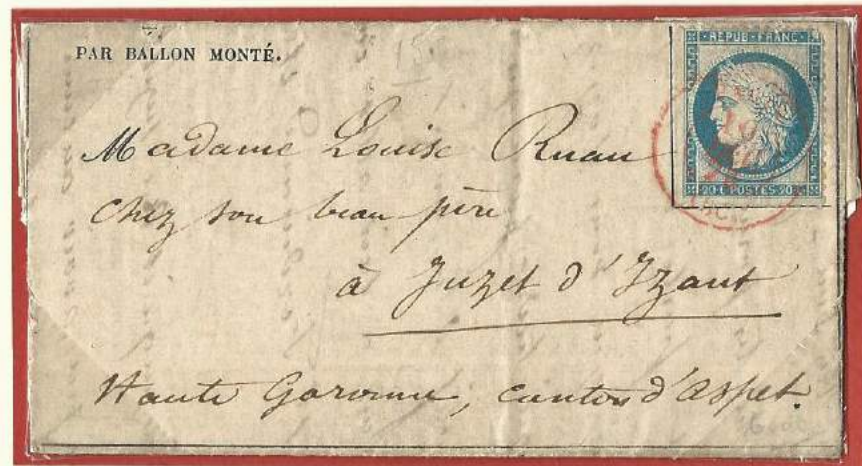 PAR BALLON MONTÉ.
REPUB · FRANC
20 C POSTES 20 C
Madame Louise Ruau
Chez son beau père
à Juzet d'Izaut
Haute Garonne, canton d'Aspet.